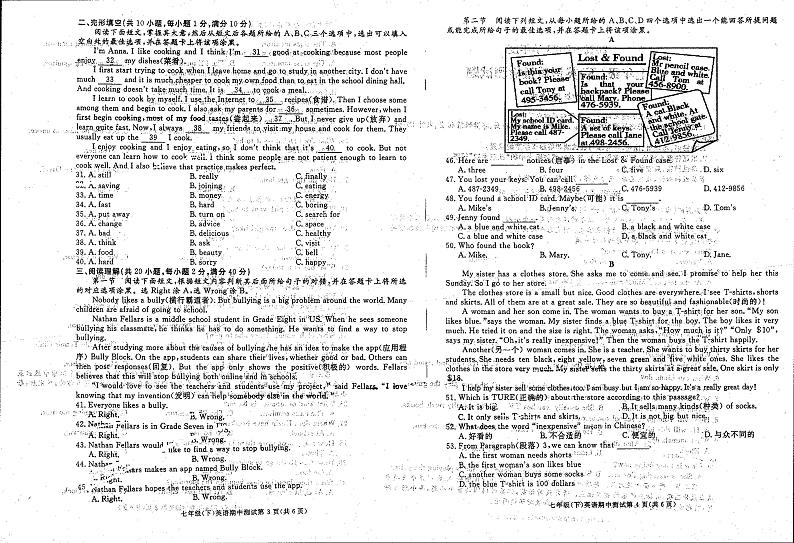 二、完形填空(共 10 小题,每小题 1 分,满分 10 分)
阅读下面短文,掌握其大意,然后从短文后各题所给的 A、B、C 三个选项中,选出可以填入
空白处的最佳选项,并在答题卡上将该项涂黑。
I'm Anna. I like cooking and I think I'm 31 good at cooking because most people
enjoy 32 my dishes(菜肴).
I first start trying to cook when I leave home and go to study in another city. I don't have
much 33 and it is much cheaper to cook my own food than to eat in the school dining hall.
And cooking doesn't take much time. It is 34 to cook a meal.
I learn to cook by myself. I use the Internet to 35 recipes(食谱). Then I choose some
among them and begin to cook. I also ask my parents for 36 sometimes. However, when I
first begin cooking, most of my food tastes(尝起来) 37 . But I never give up(放弃) and
learn quite fast. Now, I always 38 my friends to visit my house and cook for them. They
usually eat up the 39 I cook.
I enjoy cooking and I enjoy eating, so I don't think that it's 40 to cook. But not
everyone can learn how to cook well. I think some people are not patient enough to learn to
cook well. And I also believe that practice makes perfect.
31. A. still B. really C. finally
32. A. saving B. joining C. eating
33. A. time B. money C. energy
34. A. fast B. hard C. boring
35. A. put away B. turn on C. search for
36. A. change B. advice C. space
37. A. bad B. delicious C. healthy
38. A. think B. ask C. visit
39. A. food B. beauty C. bell
40. A. hard B. sorry C. happy
三、阅读理解(共 20 小题,每小题 2 分,满分 40 分)
第一节 阅读下面短文,根据短文内容判断其后面所给句子的对错,并在答题卡上将所选
的对应选项涂黑。选 Right 涂 A,选 Wrong 涂 B。
Nobody likes a bully(横行霸道者). But bullying is a big problem around the world. Many
children are afraid of going to school.
Nathan Fellars is a middle school student in Grade Eight in US. When he sees someone
bullying his classmate, he thinks he has to do something. He wants to find a way to stop
bullying.
After studying more about the causes of bullying, he has an idea to make the app(应用程
序) Bully Block. On the app, students can share their lives, whether good or bad. Others can
then post responses(回复). But the app only shows the positive(积极的) words. Fellars
believes that this will stop bullying both online and in schools.
"I would love to see the teachers and students use my project," said Fellars, "I love
knowing that my invention(发明) can help somebody else in the world."
41. Everyone likes a bully.
A. Right. B. Wrong.
42. Nathan Fellars is in Grade Seven in
A. Right. B. Wrong.
43. Nathan Fellars would like to find a way to stop bullying.
A. Right. B. Wrong.
44. Nathan Fellars makes an app named Bully Block.
A. Right. B. Wrong.
45. Nathan Fellars hopes the teachers and students use the app.
A. Right. B. Wrong.
七年级(下)英语期中测试第 3 页(共 6 页)
第二节 阅读下列短文,从每小题所给的 A、B、C、D 四个选项中选出一个能回答所提问题
或能完成所给句子的最佳选项,并在答题卡上将该项涂黑。
A
Lost & Found
Found:
Is this your
book? Please
call Tony at
495-3456.
Found:
Is that your
backpack? Please
call Mary. Phone
476-5939.
Lost:
My pencil case.
Blue and white.
Call Tom at
456-8900.
Lost:
My school ID card.
My name is Mike.
Please call 487-
2349.
Found:
A set of keys.
Please call Jane
at 498-2456.
Found:
A cat. Black
and white. At
the school gate.
Call Jenny at
412-9856.
46. Here are notices(启事) in the Lost & Found case.
A. three B. four C. five D. six
47. You lost your keys. You can call .
A. 487-2349 B. 498-2456 C. 476-5939 D. 412-9856
48. You found a school ID card. Maybe(可能) it is .
A. Mike's B. Jenny's C. Tony's D. Tom's
49. Jenny found .
A. a blue and white cat B. a black and white case
C. a blue and white case D. a black and white cat
50. Who found the book?
A. Mike. B. Mary. C. Tony. D. Jane.
B
My sister has a clothes store. She asks me to come and see. I promise to help her this
Sunday. So I go to her store.
The clothes store is a small but nice store. Good clothes are everywhere. I see T-shirts, shorts
and skirts. All of them are at a great sale. They are so beautiful and fashionable(时尚的)!
A woman and her son come in. The woman wants to buy a T-shirt for her son. "My son
likes blue. "says the woman. My sister finds a blue T-shirt for the boy. The boy likes it very
much. He tried it on and the size is right. The woman asks, "How much is it?" "Only $10",
says my sister. "Oh, it's really inexpensive!" Then the woman buys the T-shirt happily.
Another(另一个) woman comes in. She is a teacher. She wants to buy thirty skirts for her
students. She needs ten black, eight yellow, seven green and five white ones. She likes the
clothes in the store very much. My sister sells the thirty skirts at a great sale. One skirt is only
$18.
I help my sister sell some clothes, too. I am busy but I am so happy. It's a really great day!
51. Which is TURE(正确的) about the store according to this passage?
A. It is big. B. It sells many kinds(种类) of socks.
C. It only sells T-shirts and skirts. D. It is not big but nice.
52. What does the word "inexpensive" mean in Chinese?
A. 好看的 B. 不合适的 C. 便宜的 D. 与众不同的
53. From Paragraph(段落) 3, we can know that .
A. the first woman needs shorts
B. the first woman's son likes blue
C. another woman buys some socks
D. the blue T-shirt is 100 dollars
七年级(下)英语期中测试第 4 页(共 6 页)